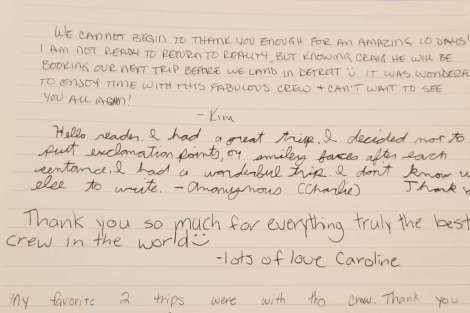 WE CANNOT BEGIN TO THANK YOU ENOUGH FOR AN AMAZING 10 DAYS!
I AM NOT READY TO RETURN TO REALITY, BUT KNOWING CRAIG HE WILL BE
BOOKING OUR NEXT TRIP BEFORE WE LAND IN DETROIT IT WAS
TO ENJOY TIME WITH THIS FABULOUS CREW + CAN'T WAIT TO SEE
YOU ALL AGAIN!
- Kim
Hello reader. I had a great trip. I decided not to
put exclamation points, or smiley faces after each
sentance. I had a wonderful trip. I don't know
else to write. - Anonymous (Charlie) Thank
Thank you so much for everything truly the best
crew in the world
-lots of love Caroline
My favorite 2 trips were with this crew. Thank you